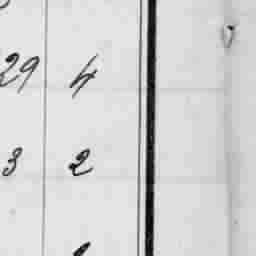 29 4
3 2